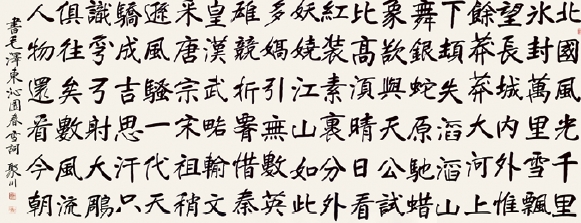 北國風光千里
冰封萬里雪飄
望長城內外惟
餘莽莽大河上
下頓失滔滔山
舞銀蛇原馳蜡
象欲與天公試
比高須晴日看
紅裝素裹分外
妖嬈江山如此
多嬌引無數英
雄競折腰惜秦
皇漢武略輸文
采唐宗宋祖稍
遜風騷一代天
驕成吉思汗只
識彎弓射大鵰
俱往矣數風流
人物還看今朝
書毛澤東沁園春雪詞 聚川